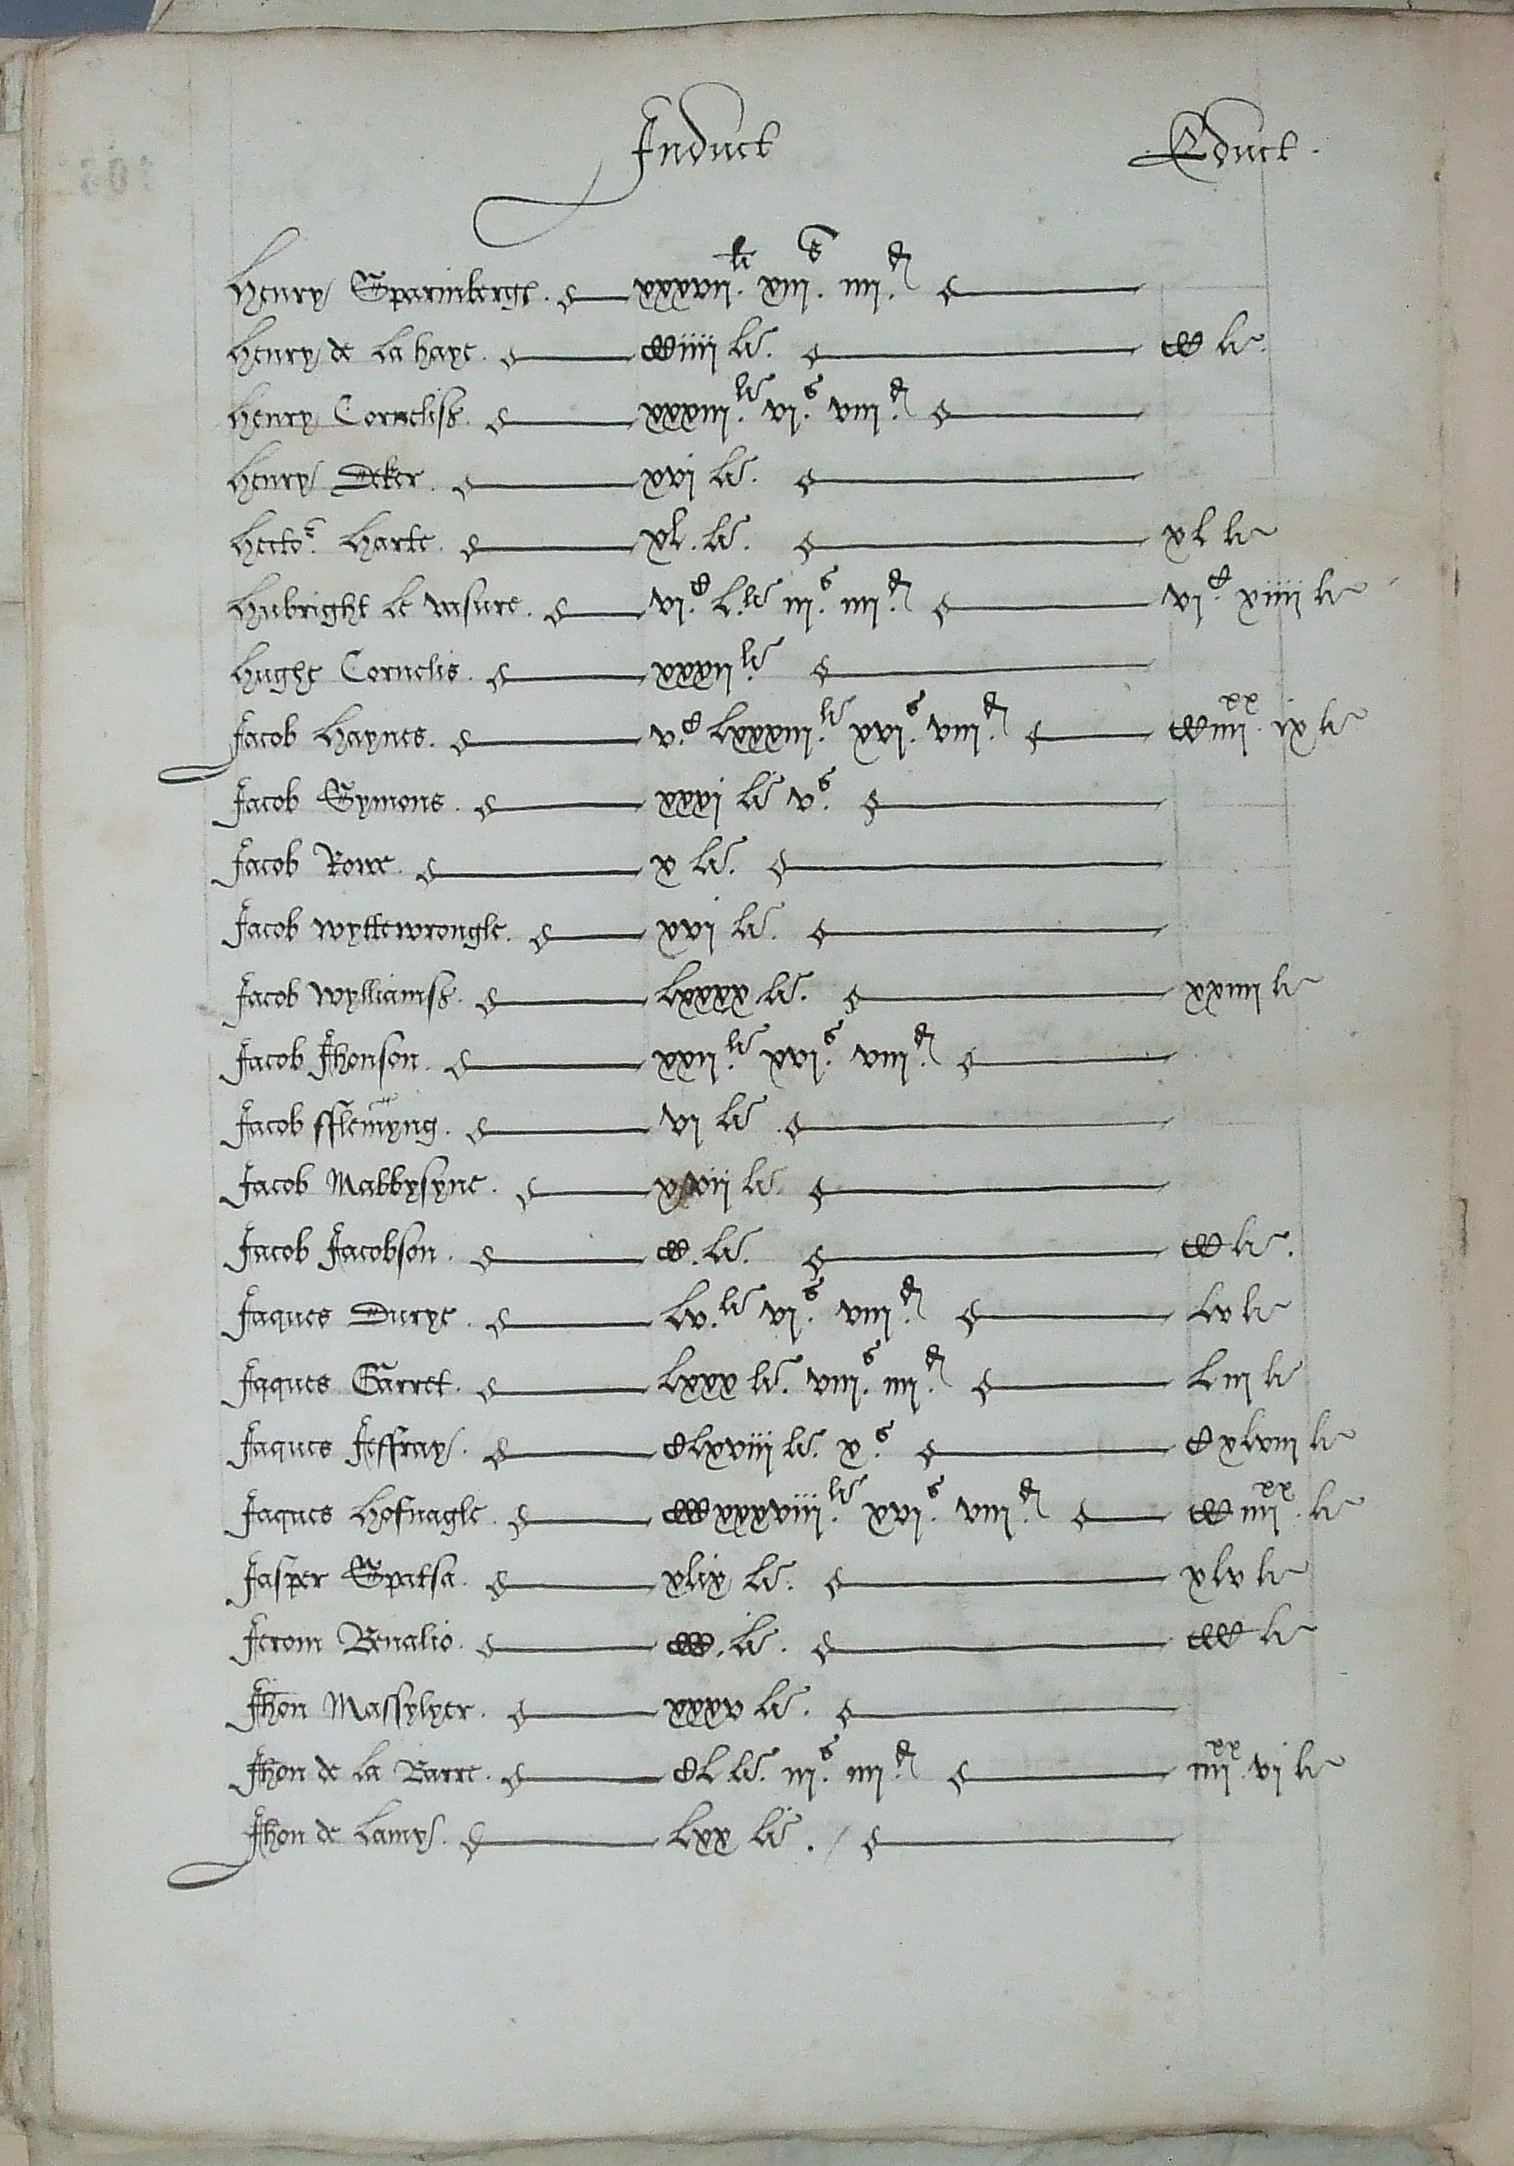 Induct Educt.
Henry Sparinberge. xxxvii.li xiii.s iiii.d
Henry de la haye. CCiiii li. CC li.
Henry Cornelisz. xxxiii.li vi.s viii.d
Henry Deker. xvi li.
Hector. Harte. xl. li. xl li
Hubright le vasure. vi.C l.li iii.s iiii.d vi.C xiiii li
Hughe Cornelis. xxxii li
Jacob Haynes. v.C lxxxiii.li xvi.s viii.d CCiiii.xx ix li
Jacob Symons. xxxi li v.s
Jacob Rowe. x li.
Jacob wyttewrongle. xvi li.
Jacob wylliamsz. lxxxx li. xxiiii li
Jacob Jhonson. xxii.li xvi.s viii.d
Jacob fflemyng. vi li
Jacob Mabbysyne. xviii li.
Jacob Jacobson. CC. li. CC li.
Jaques Durye. lv.li vi.s viii.d lv li
Jaques Garret. lxxx li. viii.s iiii.d liii li
Jaques Jeffray. Clxviii li. x.s Cxlviii li
Jaques hofnagle. CCCxxxviii.li xvi.s viii.d CCiiii.xx li
Jasper Spatsa. xlix li. xlv li
Jerom Benalio. CCC. li. CCC li
Jhon Massylyer. xxxv li.
Jhon de la Barre. Cl li. iii.s iiii.d iiii.xx vi li
Jhon de lamy. lxx li.